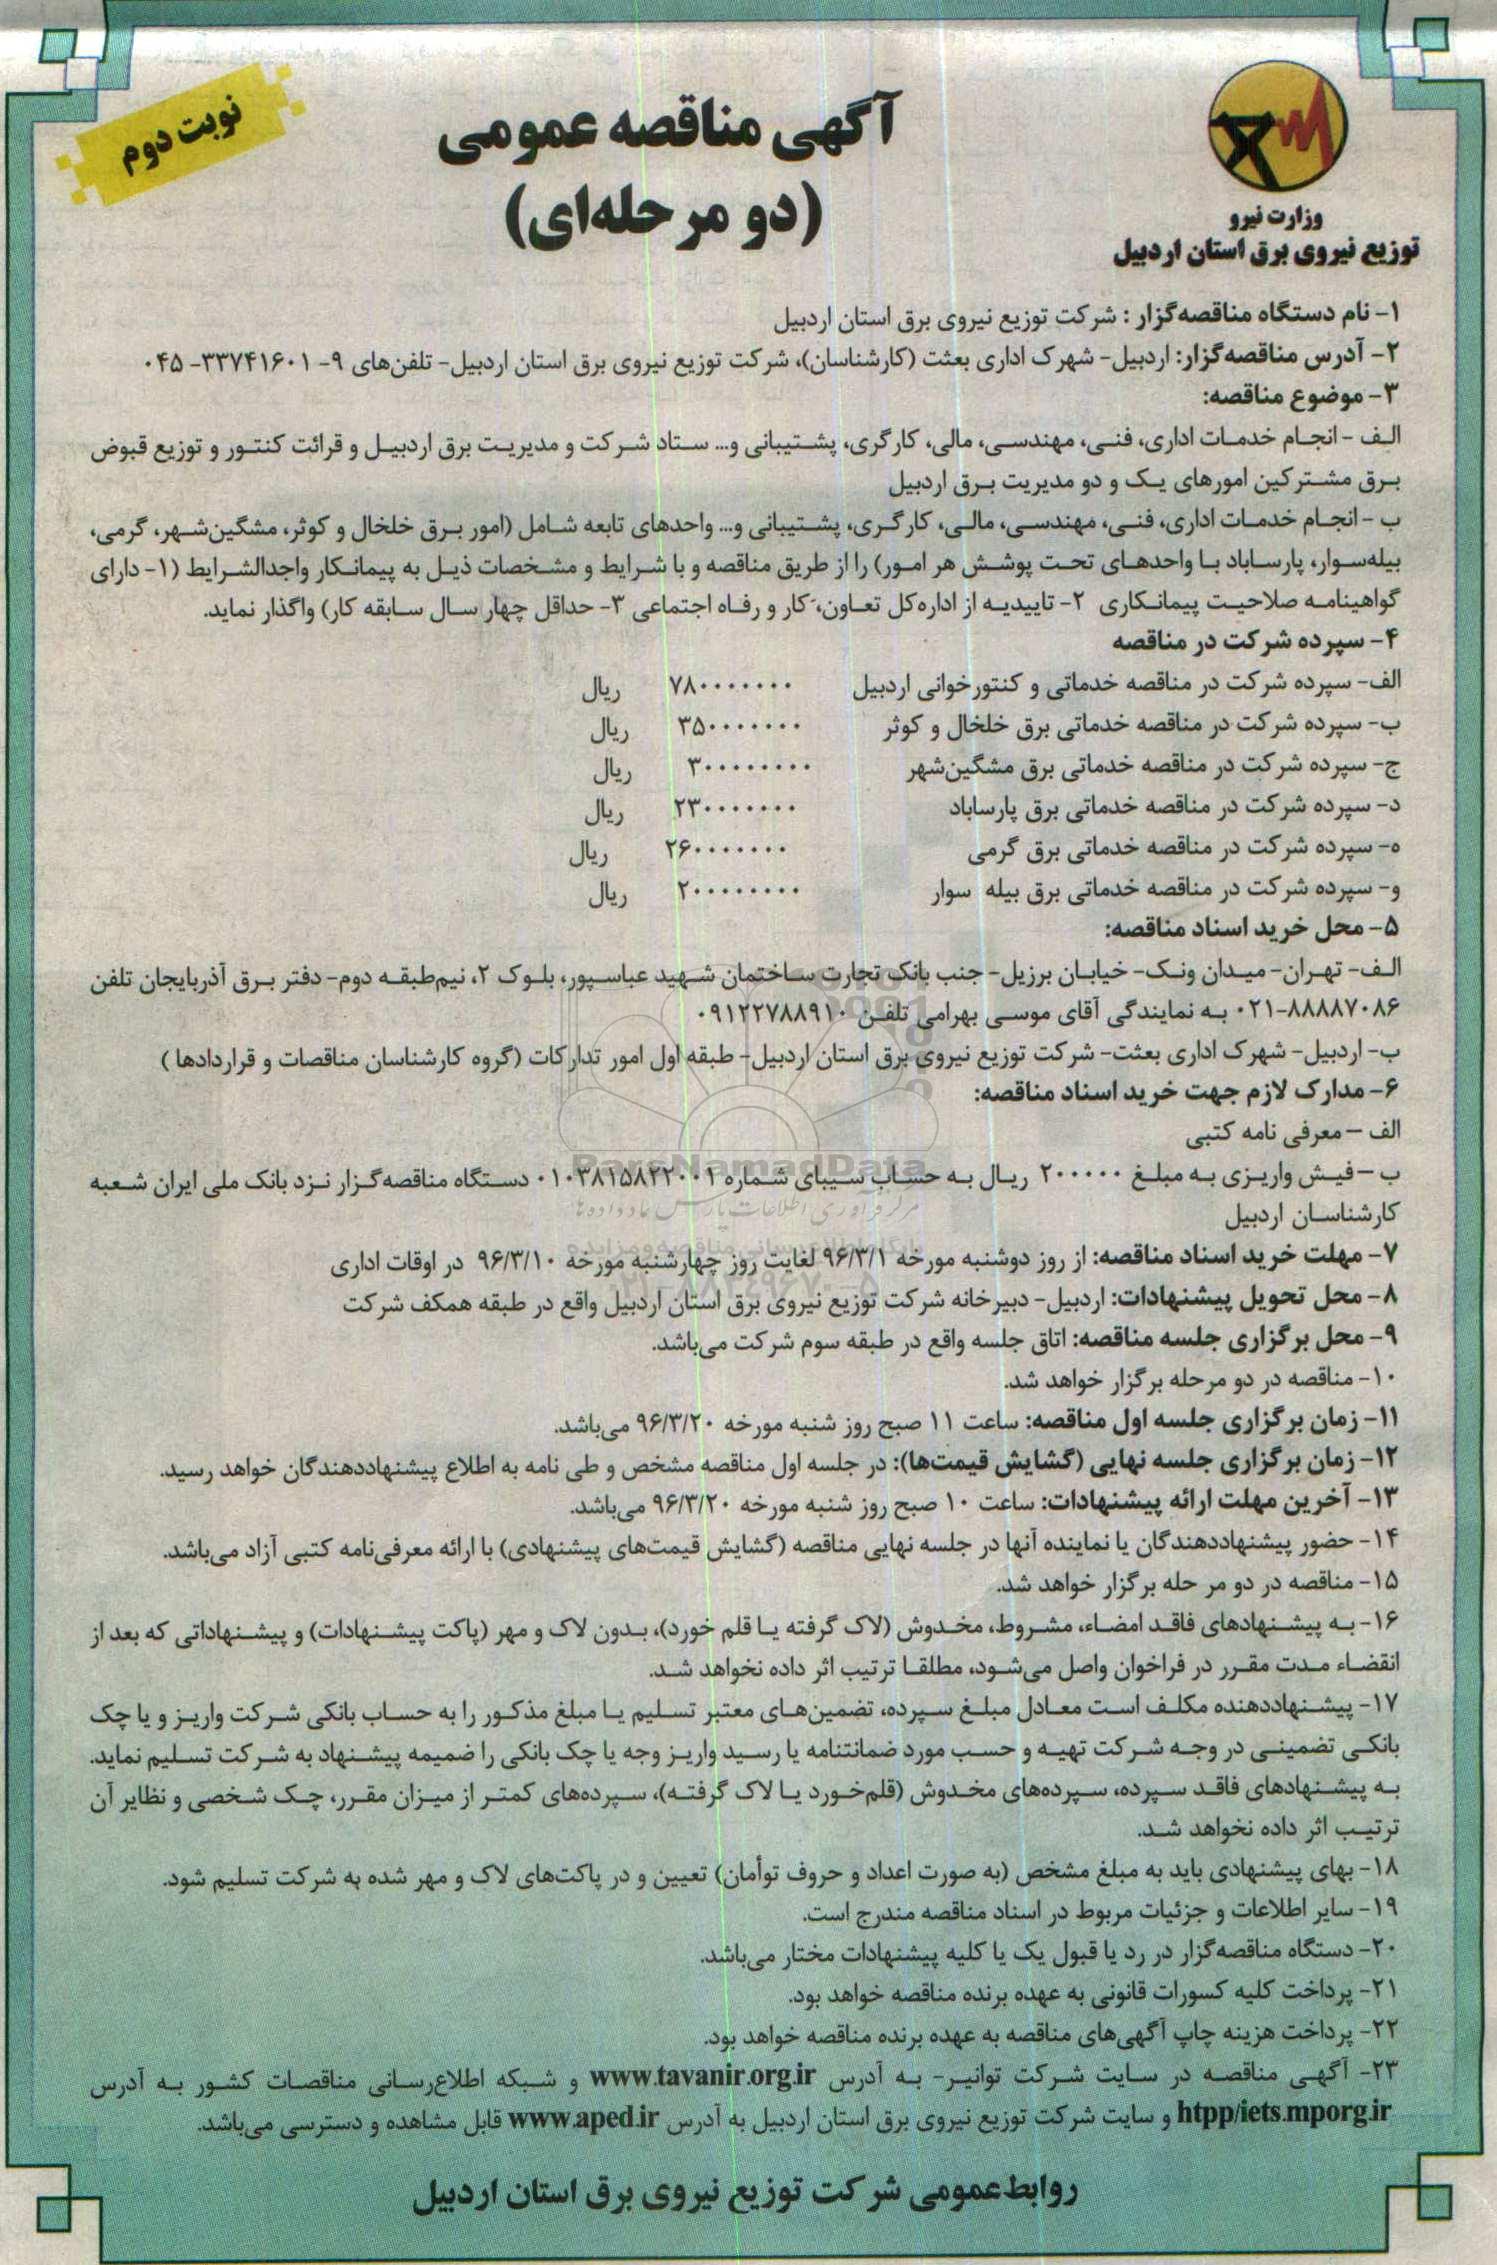 نوبت دوم
آگهی مناقصه عمومی
(دو مرحله‌ای)
وزارت نیرو
توزیع نیروی برق استان اردبیل
۱- نام دستگاه مناقصه‌گزار : شرکت توزیع نیروی برق استان اردبیل
۲- آدرس مناقصه‌گزار: اردبیل- شهرک اداری بعثت (کارشناسان)، شرکت توزیع نیروی برق استان اردبیل- تلفن‌های ۹- ۳۳۷۴۱۶۰۱- ۰۴۵
۳- موضوع مناقصه:
الف - انجام خدمات اداری، فنی، مهندسی، مالی، کارگری، پشتیبانی و... ستاد شرکت و مدیریت برق اردبیل و قرائت کنتور و توزیع قبوض
برق مشترکین امورهای یک و دو مدیریت برق اردبیل
ب - انجام خدمات اداری، فنی، مهندسی، مالی، کارگری، پشتیبانی و... واحدهای تابعه شامل (امور برق خلخال و کوثر، مشگین‌شهر، گرمی،
بیله‌سوار، پارساباد با واحدهای تحت پوشش هر امور) را از طریق مناقصه و با شرایط و مشخصات ذیل به پیمانکار واجدالشرایط (۱- دارای
گواهینامه صلاحیت پیمانکاری ۲- تاییدیه از اداره‌کل تعاون، کار و رفاه اجتماعی ۳- حداقل چهار سال سابقه کار) واگذار نماید.
۴- سپرده شرکت در مناقصه
الف- سپرده شرکت در مناقصه خدماتی و کنتورخوانی اردبیل ۷۸۰۰۰۰۰۰۰ ریال
ب- سپرده شرکت در مناقصه خدماتی برق خلخال و کوثر ۳۵۰۰۰۰۰۰۰ ریال
ج- سپرده شرکت در مناقصه خدماتی برق مشگین‌شهر ۳۰۰۰۰۰۰۰۰ ریال
د- سپرده شرکت در مناقصه خدماتی برق پارساباد ۲۳۰۰۰۰۰۰۰ ریال
ه- سپرده شرکت در مناقصه خدماتی برق گرمی ۲۶۰۰۰۰۰۰۰ ریال
و- سپرده شرکت در مناقصه خدماتی برق بیله سوار ۲۰۰۰۰۰۰۰۰ ریال
۵- محل خرید اسناد مناقصه:
الف- تهران- میدان ونک- خیابان برزیل- جنب بانک تجارت ساختمان شهید عباسپور، بلوک ۲، نیم‌طبقه دوم- دفتر برق آذربایجان تلفن
۰۲۱-۸۸۸۸۷۰۸۶ به نمایندگی آقای موسی بهرامی تلفن ۰۹۱۲۲۷۸۸۹۱۰
ب- اردبیل- شهرک اداری بعثت- شرکت توزیع نیروی برق استان اردبیل- طبقه اول امور تدارکات (گروه کارشناسان مناقصات و قراردادها )
۶- مدارک لازم جهت خرید اسناد مناقصه:
الف – معرفی نامه کتبی
ParsNamadData
ب – فیش واریزی به مبلغ ۲۰۰۰۰۰ ریال به حساب سیبای شماره ۰۱۰۳۸۱۵۸۲۲۰۰۱ دستگاه مناقصه‌گزار نزد بانک ملی ایران شعبه
کارشناسان اردبیل
۷- مهلت خرید اسناد مناقصه: از روز دوشنبه مورخه ۹۶/۳/۱ لغایت روز چهارشنبه مورخه ۹۶/۳/۱۰ در اوقات اداری
۸- محل تحویل پیشنهادات: اردبیل- دبیرخانه شرکت توزیع نیروی برق استان اردبیل واقع در طبقه همکف شرکت
۹- محل برگزاری جلسه مناقصه: اتاق جلسه واقع در طبقه سوم شرکت می‌باشد.
۱۰- مناقصه در دو مرحله برگزار خواهد شد.
۱۱- زمان برگزاری جلسه اول مناقصه: ساعت ۱۱ صبح روز شنبه مورخه ۹۶/۳/۲۰ می‌باشد.
۱۲- زمان برگزاری جلسه نهایی (گشایش قیمت‌ها): در جلسه اول مناقصه مشخص و طی نامه به اطلاع پیشنهاددهندگان خواهد رسید.
۱۳- آخرین مهلت ارائه پیشنهادات: ساعت ۱۰ صبح روز شنبه مورخه ۹۶/۳/۲۰ می‌باشد.
۱۴- حضور پیشنهاددهندگان یا نماینده آنها در جلسه نهایی مناقصه (گشایش قیمت‌های پیشنهادی) با ارائه معرفی‌نامه کتبی آزاد می‌باشد.
۱۵- مناقصه در دو مر حله برگزار خواهد شد.
۱۶- به پیشنهادهای فاقد امضاء، مشروط، مخدوش (لاک گرفته یا قلم خورد)، بدون لاک و مهر (پاکت پیشنهادات) و پیشنهاداتی که بعد از
انقضاء مدت مقرر در فراخوان واصل می‌شود، مطلقا ترتیب اثر داده نخواهد شد.
۱۷- پیشنهاددهنده مکلف است معادل مبلغ سپرده، تضمین‌های معتبر تسلیم یا مبلغ مذکور را به حساب بانکی شرکت واریز و یا چک
بانکی تضمینی در وجه شرکت تهیه و حسب مورد ضمانتنامه یا رسید واریز وجه یا چک بانکی را ضمیمه پیشنهاد به شرکت تسلیم نماید.
به پیشنهادهای فاقد سپرده، سپرده‌های مخدوش (قلم‌خورد یا لاک گرفته)، سپرده‌های کمتر از میزان مقرر، چک شخصی و نظایر آن
ترتیب اثر داده نخواهد شد.
۱۸- بهای پیشنهادی باید به مبلغ مشخص (به صورت اعداد و حروف توأمان) تعیین و در پاکت‌های لاک و مهر شده به شرکت تسلیم شود.
۱۹- سایر اطلاعات و جزئیات مربوط در اسناد مناقصه مندرج است.
۲۰- دستگاه مناقصه‌گزار در رد یا قبول یک یا کلیه پیشنهادات مختار می‌باشد.
۲۱- پرداخت کلیه کسورات قانونی به عهده برنده مناقصه خواهد بود.
۲۲- پرداخت هزینه چاپ آگهی‌های مناقصه به عهده برنده مناقصه خواهد بود.
۲۳- آگهی مناقصه در سایت شرکت توانیر- به آدرس www.tavanir.org.ir و شبکه اطلاع‌رسانی مناقصات کشور به آدرس
htpp/iets.mporg.ir و سایت شرکت توزیع نیروی برق استان اردبیل به آدرس www.aped.ir قابل مشاهده و دسترسی می‌باشد.
روابط‌عمومی شرکت توزیع نیروی برق استان اردبیل